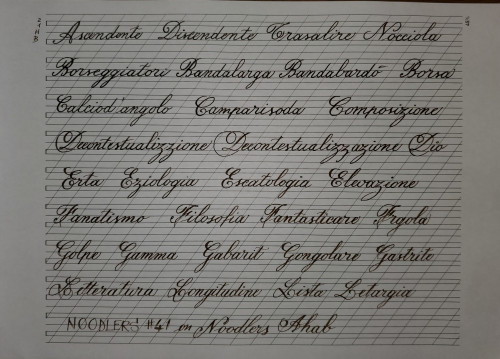 Ascendente Discendente Trasalire Nocciola
Borseggiatori Bandalarga Bandabardò Borsa
Calciod'angolo Camparisoda Composizione
Decontestualizzione Decontestualizzazione Dio
Erta Eziologia Escatologia Elevazione
Fanatismo Filosofia Fantasticare Frgola
Golpe Gamma Gabarit Gongolare Gastrite
Letteratura Longitudine Lista Letargia
NOODLERS' #41 on Noodlers Ahab